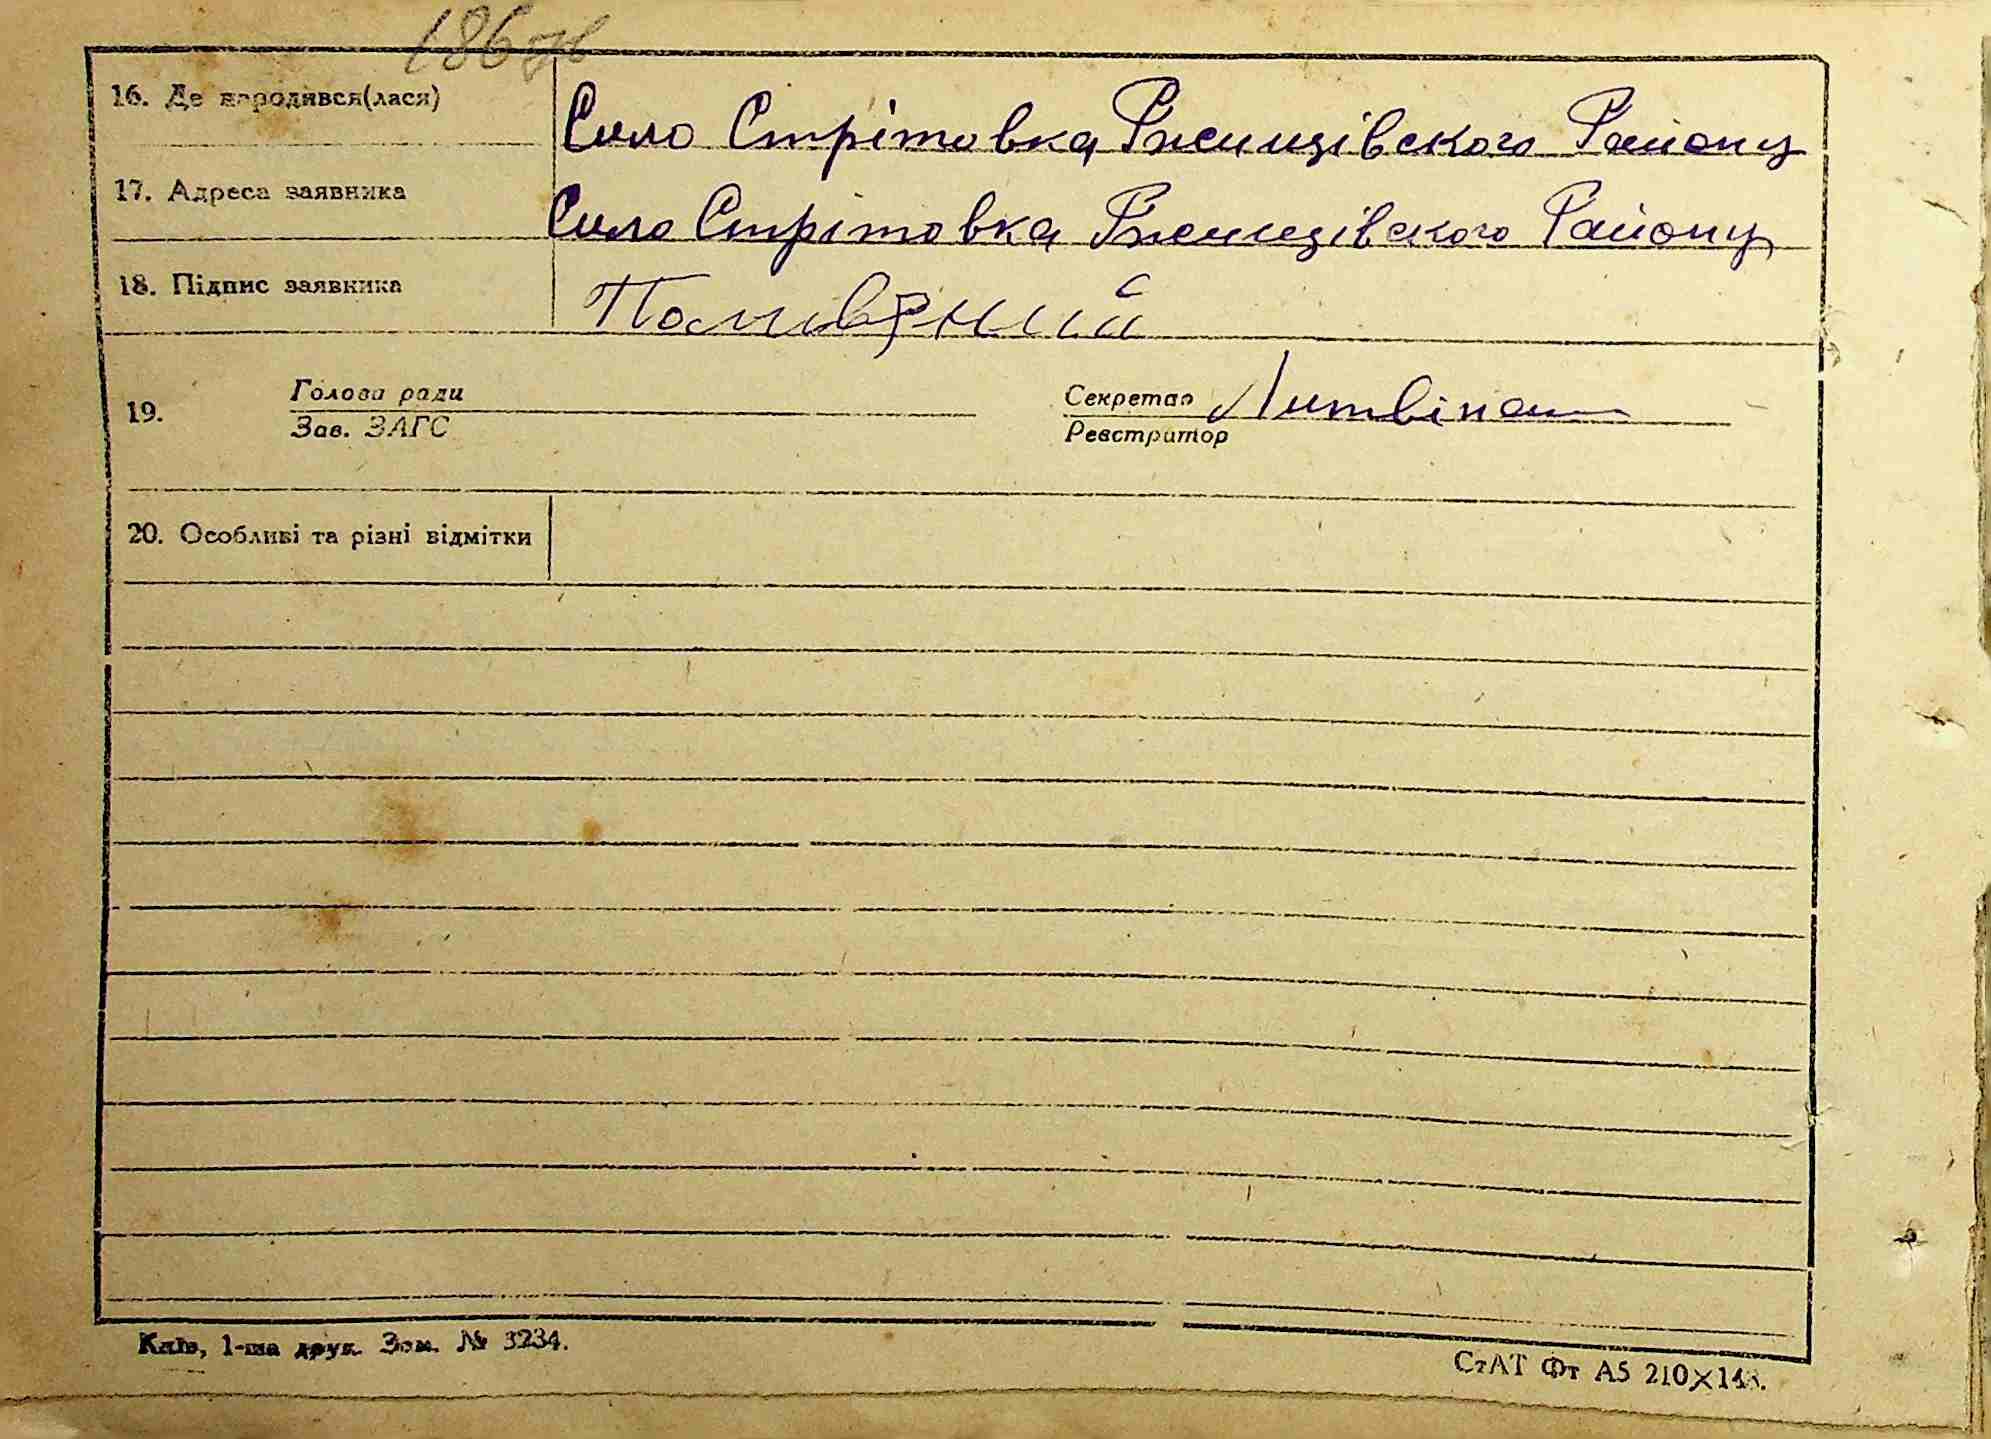 186 зв
16. Де народився(лася) Село Стрітовка Ржищівского Району
17. Адреса заявника Село Стрітовка Ржищівского Району
18. Підпис заявника Поливяний
19. Голова ради Секретар Литвіна
Зав. ЗАГС Реєстратор
20. Особливі та різні відмітки
Київ, 1-ша друк. Зам. № 3234.
СтАТ Фт А5 210×148.